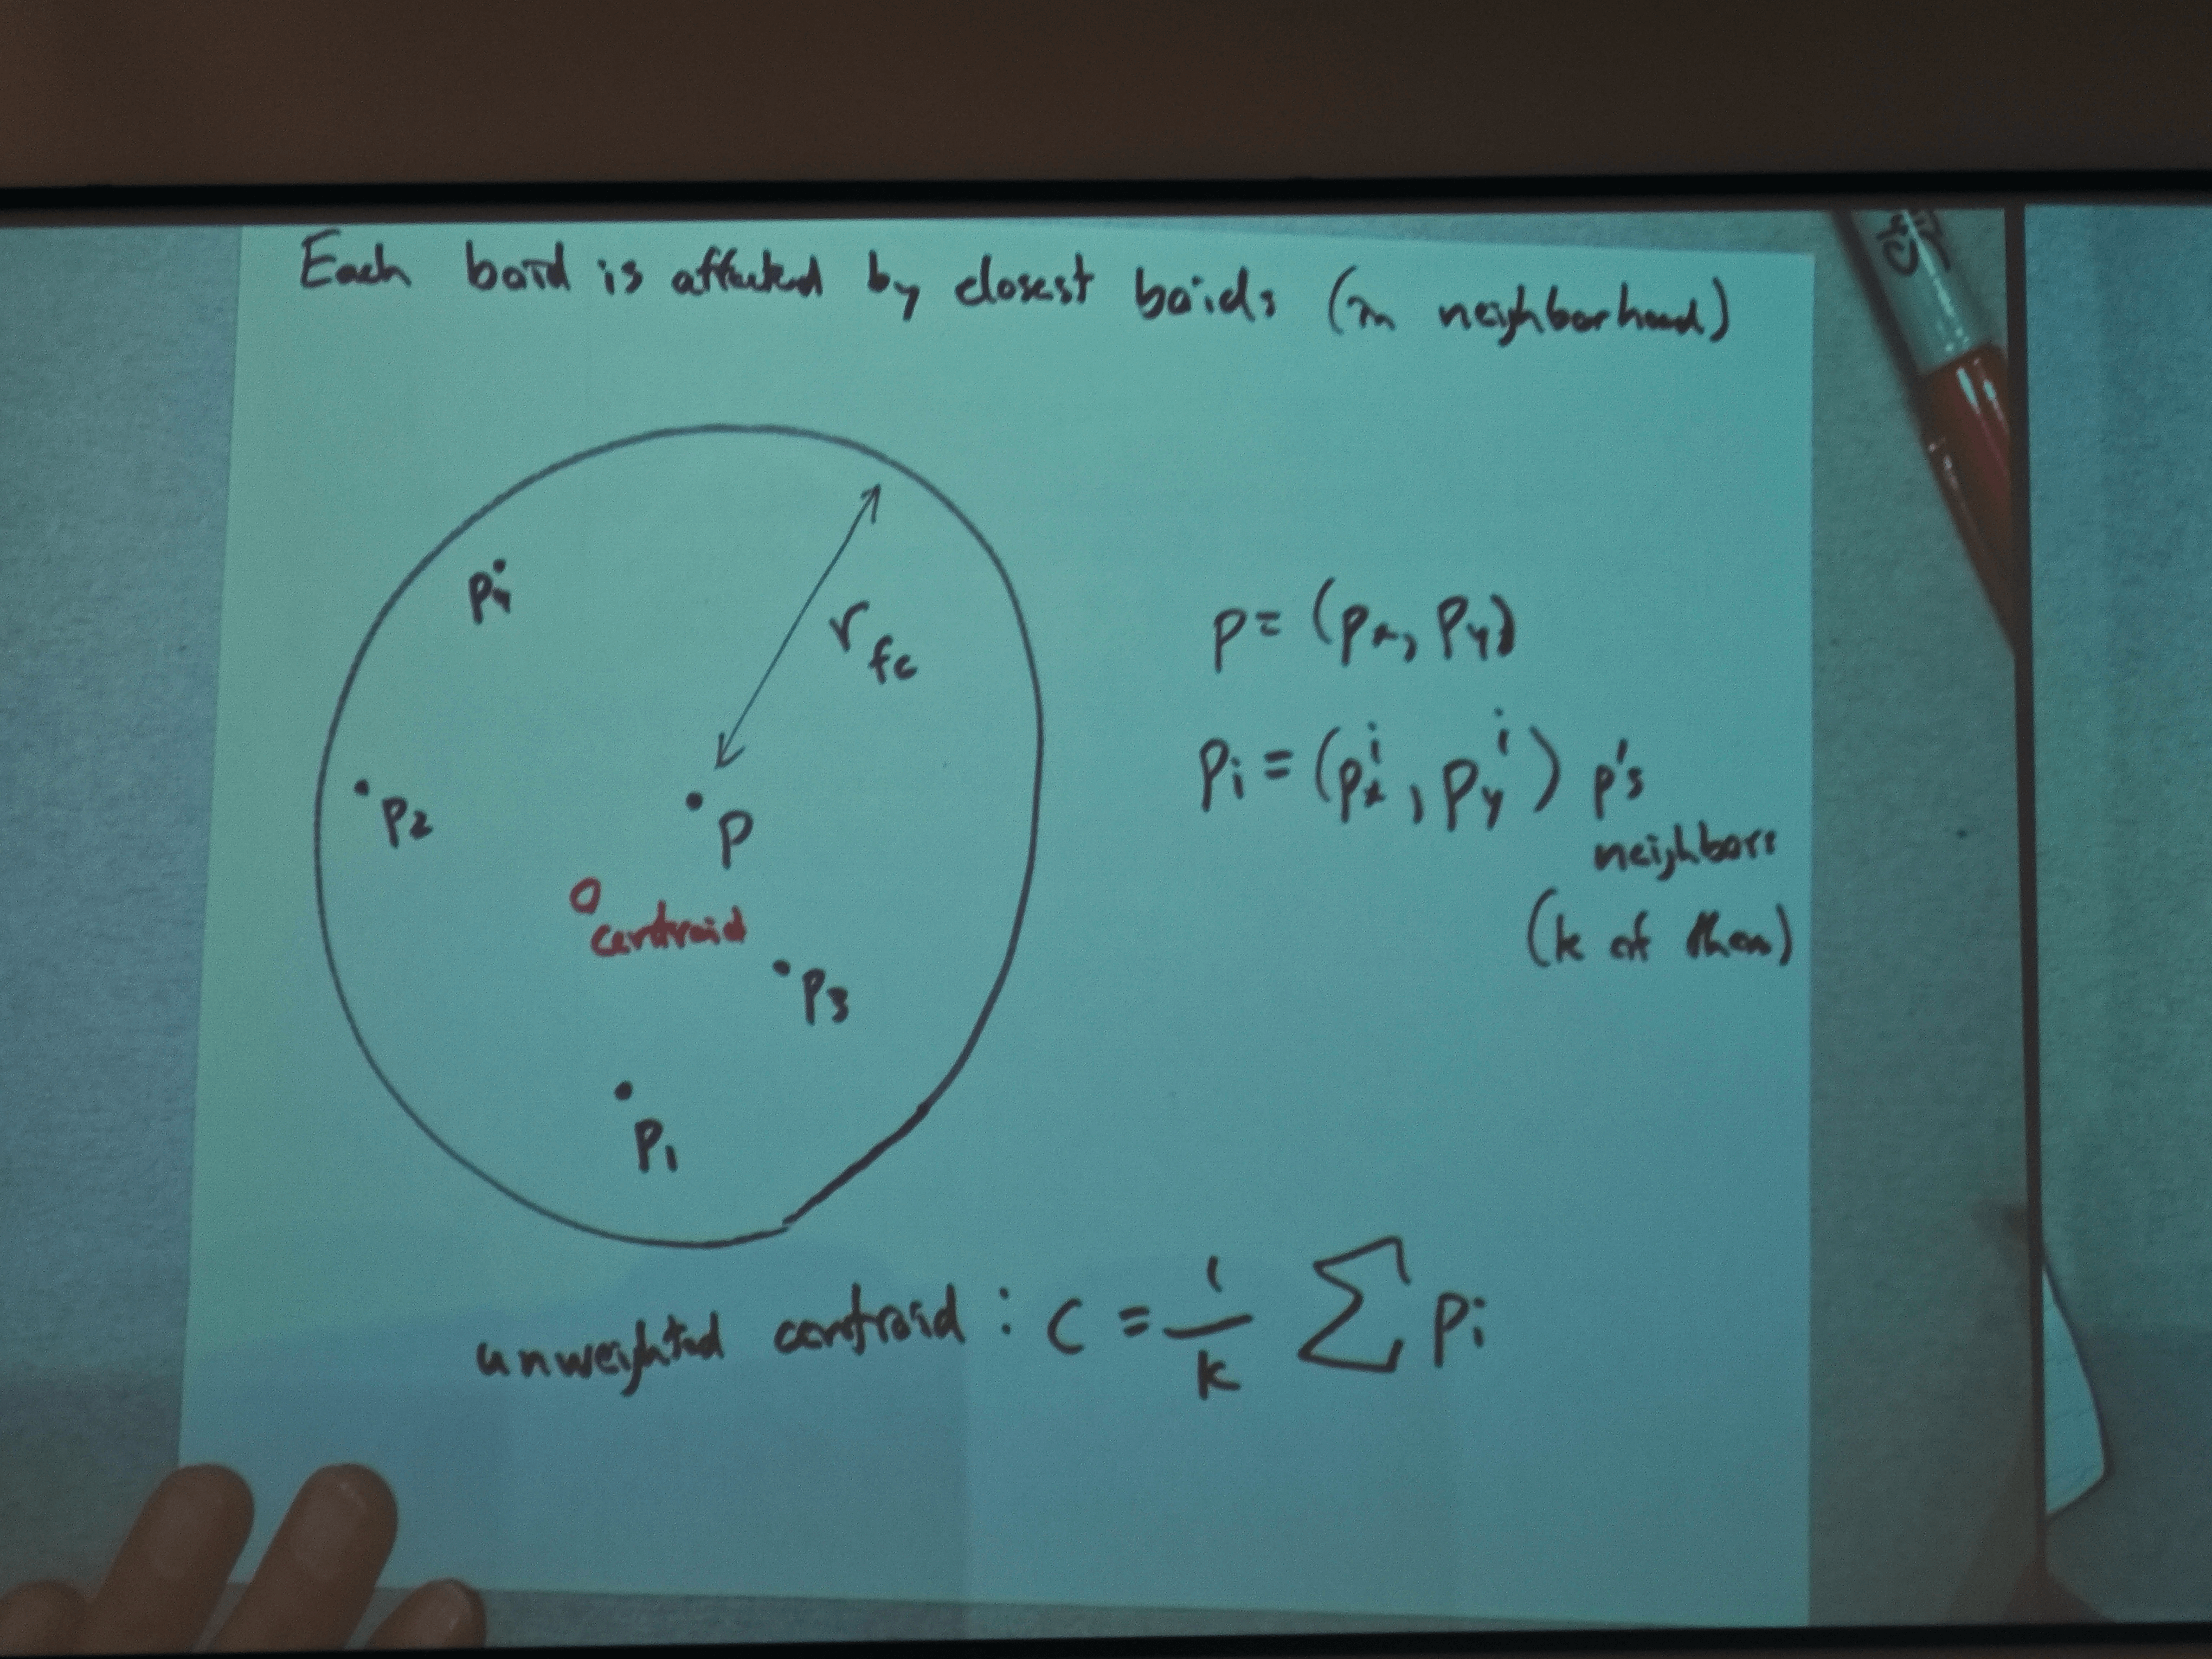 Each boid is affected by closest boids (in neighborhood)
p4
r fc
p = (px, py)
pi = (px^i, py^i) p's
neighbors
(k of them)
p2
p
centroid
p3
p1
unweighted centroid : c = 1/k ∑ pi